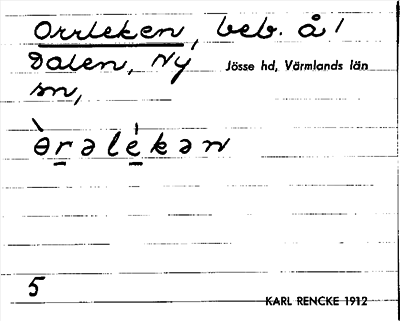 Orrleken, beb. å /
Dalen, Ny Jösse hd, Värmlands län
sn,
ə̀r̠əle̠̍kən
5
KARL RENCKE 1912